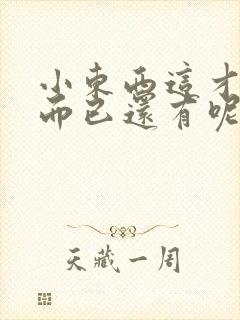 小東西這才
而已還有呢
天藏一周